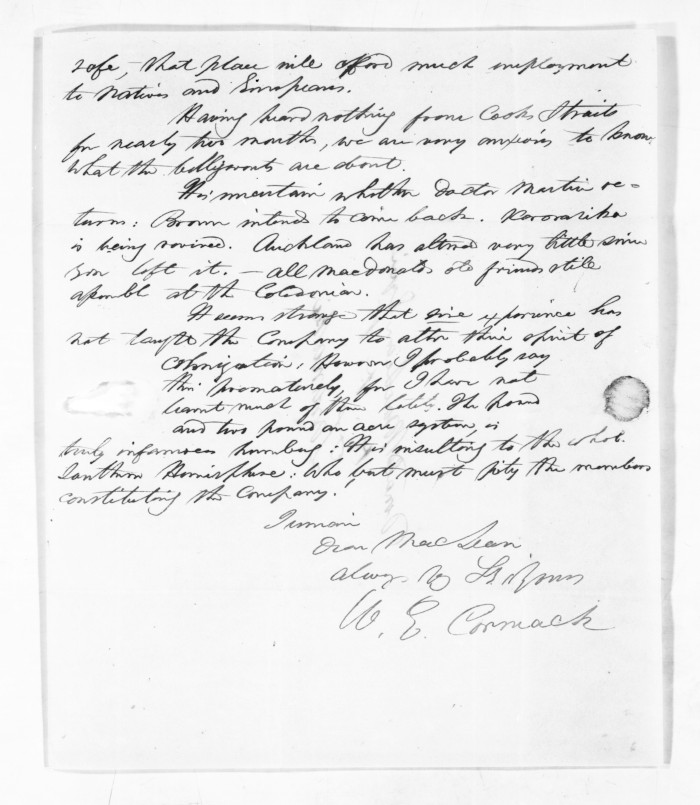 safe, that place will afford much employment
to Natives and Europeans.
Having heard nothing from Cooks Straits
for nearly two months, we are very anxious to know
what the are about.
It is uncertain whether Doctor Martin re-
turns: Brown intends to come back. Kororarika
is being revived. Auckland has altered very little since
you left it. — all Macdonalds old friends still
assemble at the Caledonian.
It seems strange that experience has
not taught the Company to alter their spirit of
colonization, However I probably say
this prematurely, for I have not
learnt much of them lately. The pound
and two pound an acre system, is
truly infamous humbug: It is insulting to the whole
Southern Hemisphere: Who but must pity the members
constituting the Company!
I remain
Dear MacLean
always Yours
W. E. Cormack